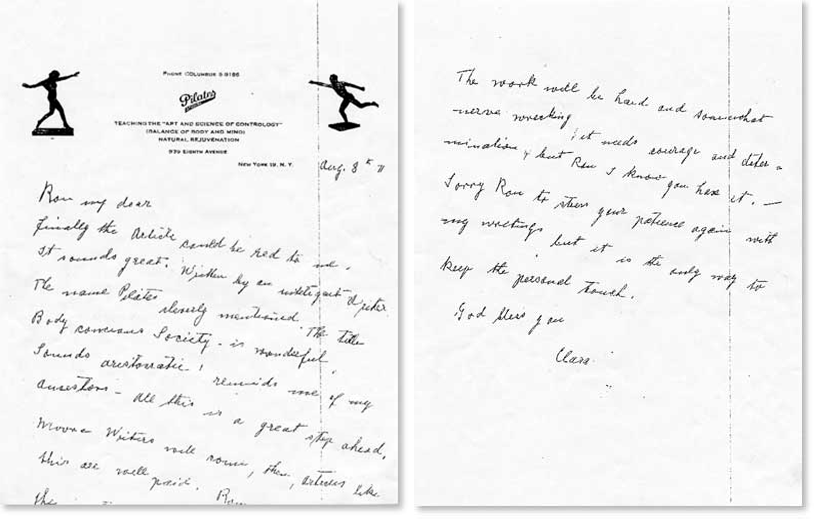 PHONE COLUMBUS 5-9186
Pilates
TEACHING THE "ART AND SCIENCE OF CONTROLOGY"
(BALANCE OF BODY AND MIND)
NATURAL REJUVENATION
939 EIGHTH AVENUE
NEW YORK 19, N. Y.
Aug. 8th
Ron my dear
finally the Article could be red to me.
It sounds great. Written by an
The name Pilates mentioned. The title
Body Society - is wonderful
Sounds aristocratic! reminds me of my
ancestors - All this is a great step ahead.
Writers will come, then, articles like
this are well paid. Ron
the
The work will be hard and somewhat
nerve wrecking! it needs courage and deter-
mination, but Ron I know you have it. —
Sorry Ron to stress your patience again with
my writings but it is the only way to
keep the personal touch.
God bless you
Clara